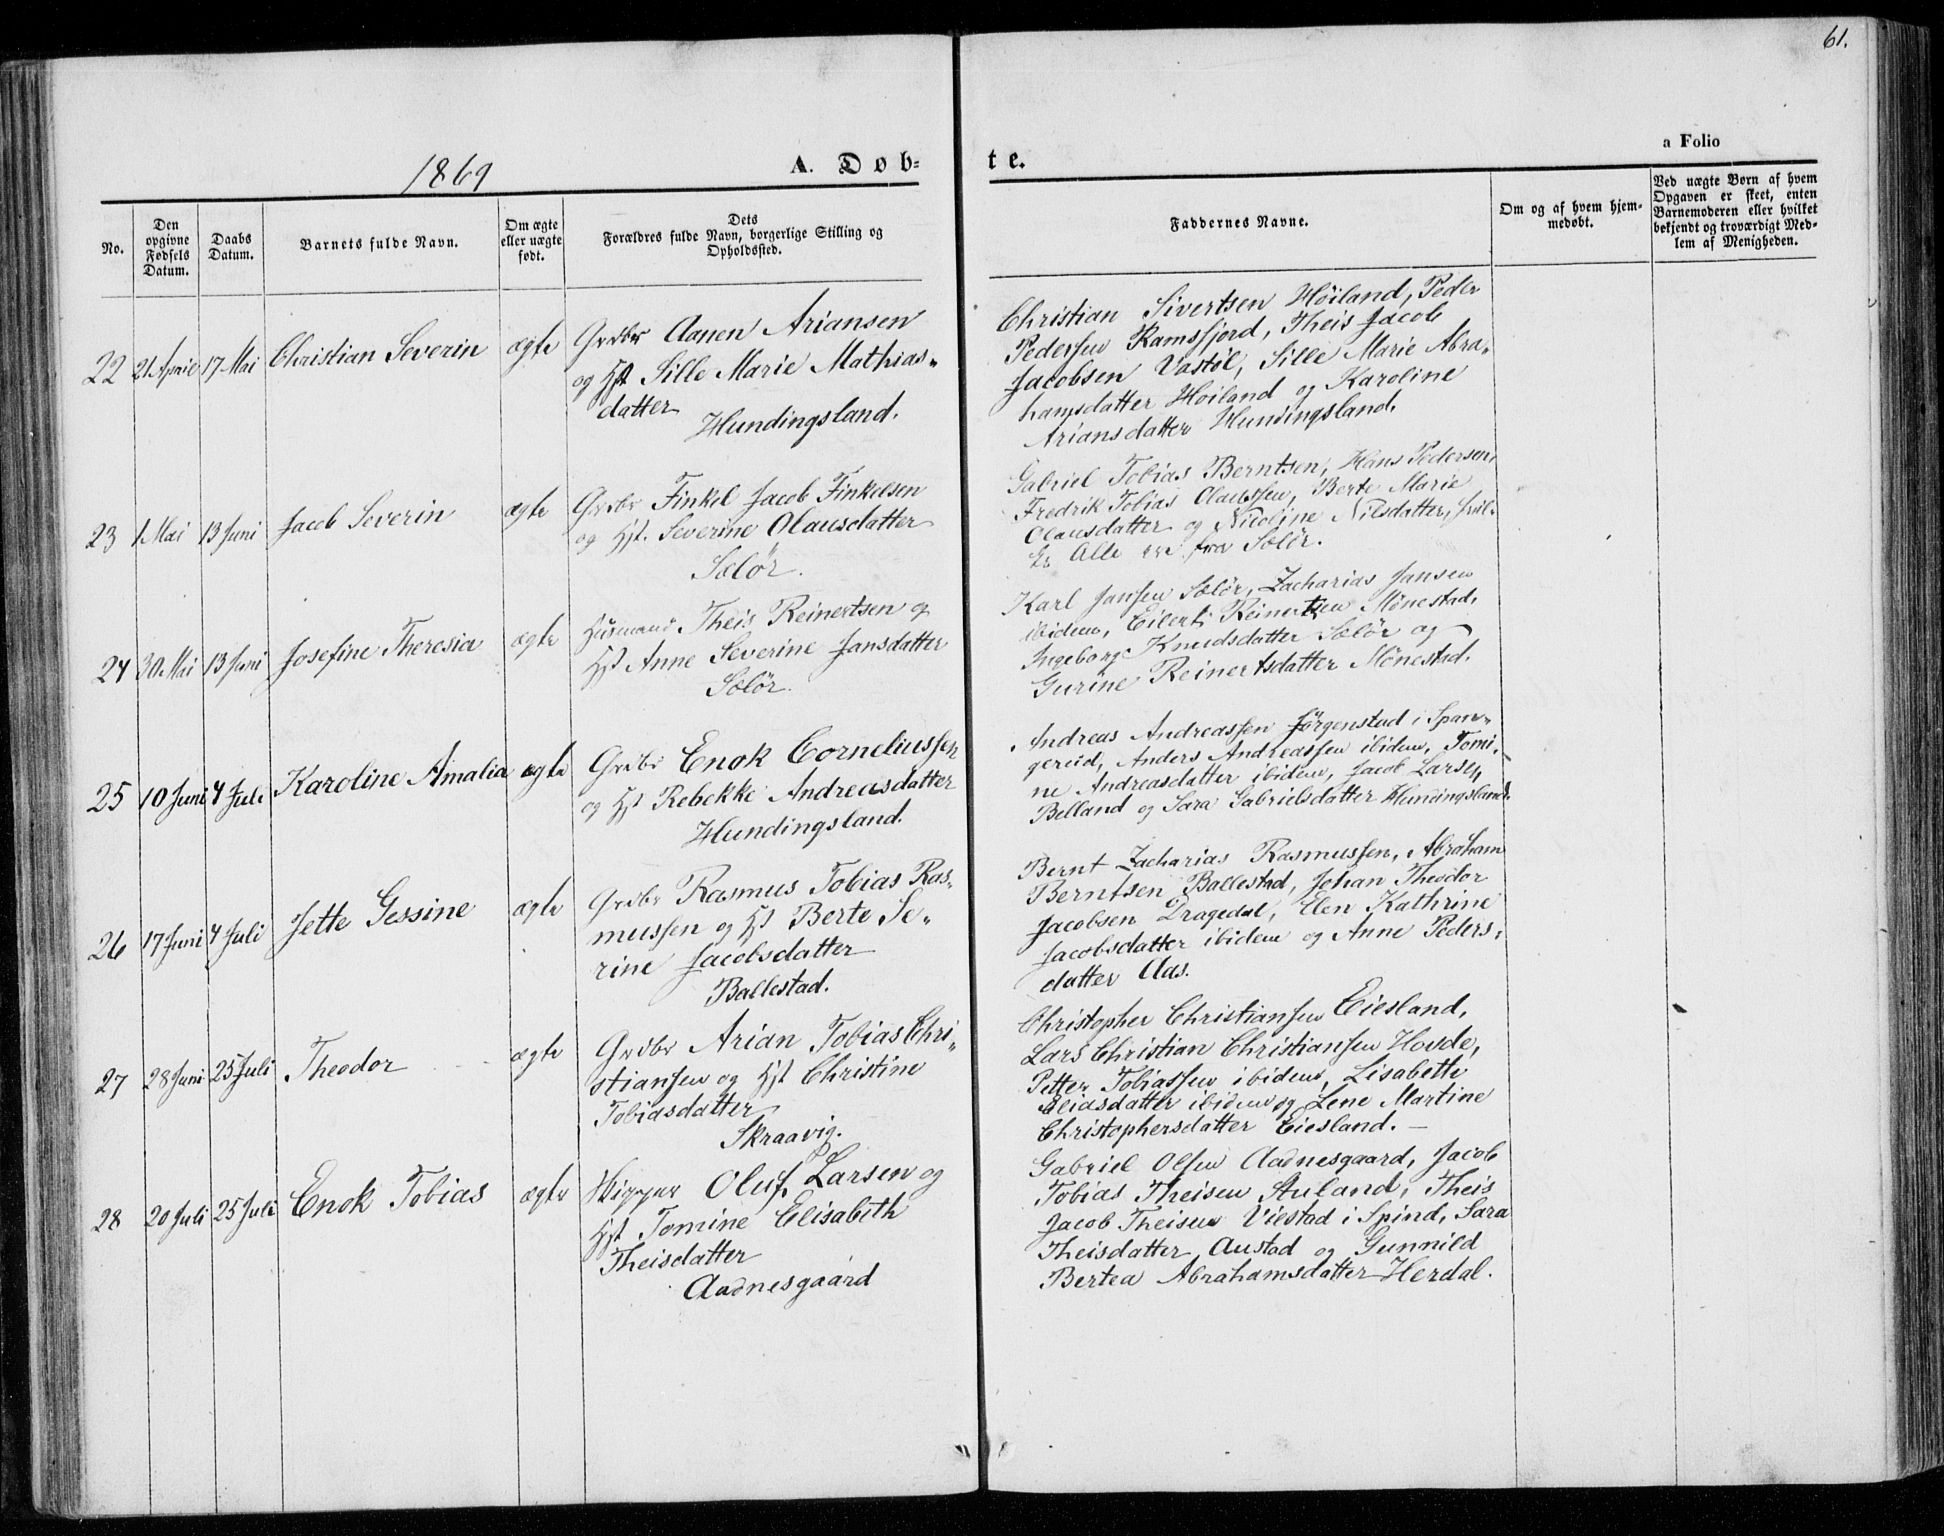 61.
a Folio
1869
A. Døb-
te.
No.
Den opgivne Fødsels Datum.
Daabs Datum.
Barnets fulde Navn.
Om ægte eller uægte født.
Dets Forældres fulde Navn, borgerlige Stilling og Opholdssted.
Faddernes Navne.
Om og af hvem hjem-
medøbt.
Ved uægte Børn af hvem
Opgaven er skeet, enten
Barnemoderen eller hvilket
bekjendt og troværdigt Med-
lem af Menigheden.
22 21 April 17 Mai Christian Severin ægte
Grdbr Aanen Ariansen
og Hst Sille Marie Mathias-
datter
Hundingsland.
Christian Sivertsen Høiland, Peder
Pedersen Ramsfjord, Theis Jacob
Jacobsen Vastøl, Sille Marie Abra-
hamsdatter Høiland og Karoline
Ariansdatter Hundingsland.
23 1 Mai 13 Juni Jacob Severin ægte
Grdbr Finkel Jacob Finkelsen
og Hst. Severine Olausdatter
Sælør.
Gabriel Tobias Berntsen, Hans Pedersen,
Fredrik Tobias Olaussen, Berte Marie
Olausdatter og Nicoline Nilsdatter,
Alle ere fra Sælør.
24 30 Mai 13 Juni Josefine Theresia ægte
Husmand Theis Reinertsen og
Hst Anne Severine Jansdatter
Sælør.
Karl Jansen Sælør, Zacharias Jansen
ibidem, Eilert Reinertsen Mønestad,
Ingeborg Knudsdatter Sælør og
Gurine Reinertsdatter Mønestad.
25 10 Juni 4 Juli Karoline Amalia ægte
Grdbr Enok Corneliussen
og Hst Rebekke Andreasdatter
Hundingsland.
Andreas Andreassen Jørgenstad i Span-
gereid, Anders Andreassen ibidem, Tomi-
ne Andreasdatter ibidem, Jacob Larsen
Belland og Sara Gabrielsdatter Hundingsland.
26 17 Juni 4 Juli Jette Gessine ægte
Grdbr Rasmus Tobias Ras-
mussen og Hst Berte Se-
rine Jacobsdatter
Ballestad.
Bernt Zacharias Rasmussen, Abraham
Berntsen Ballestad, Johan Theodor
Jacobsen Dragedal, Elen Kathrine
Jacobsdatter ibidem og Anne Peders-
datter Aas.
27 28 Juni 25 Juli Theodor ægte
Grdbr Arian Tobias Chri-
stiansen og Hst Christine
Tobiasdatter
Skraavig.
Christopher Christiansen Eiesland,
Lars Christian Christiansen Hovde,
Petter Tobiassen ibidem, Lisabeth
Eliasdatter ibidem og Lene Martine
Christophersdatter Eiesland.
28 20 Juli 25 Juli Enok Tobias ægte
Oluf Larsen og
Hst Tomine Elisabeth
Theisdatter
Aadnesgaard
Gabriel Olsen Aadnesgaard, Jacob
Tobias Theisen Auland, Theis
Jacob Theisen Vilstad i Spind, Sara
Theisdatter Austad og Gunnild
Bertea Abrahamsdatter Herdal.